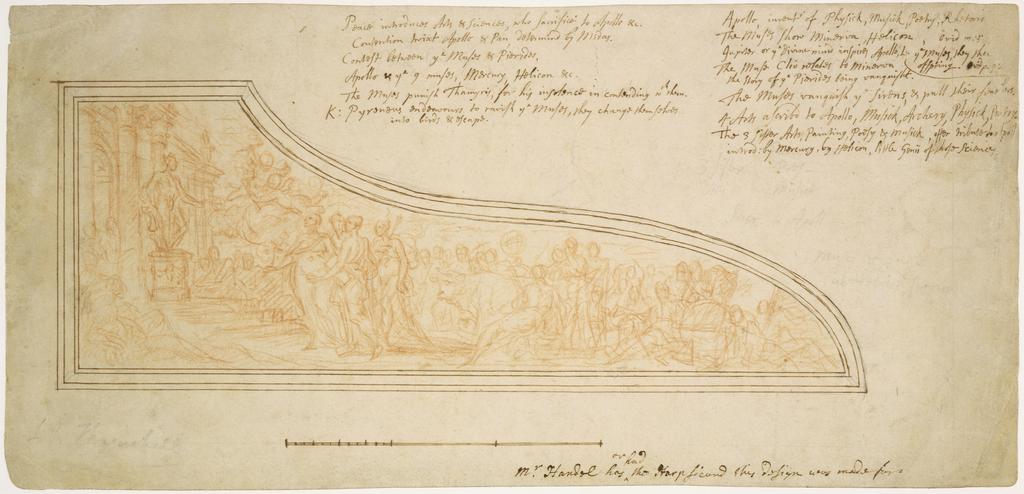 Peace introduces Arts & Sciences, who sacrifice to Apollo &c.
Contention twixt Apollo & Pan determin'd by Midas.
Contest between yᵉ Muses & Pierides.
Apollo & yᵉ 9 muses, Mercury, Helicon &c.
The Muses punish Thamyris, for his insolence in contending wᵗʰ them.
K: Pyreneus endeavours to ravish yᵉ Muses, they change themselves
into birds & escape.
Apollo, inventʳ of Physick, Musick, Poetry, Rhetoric
The Muses show Minerva Helicon. Ovid m.5.
Jupiter or yᵉ Divine mind inspires Apollo, & yᵉ Muses, they their
The Muse Clio relates to Minerva offspring.
the story of yᵉ Pierides being vanquish't.
The Muses vanquish yᵉ Sirens, & pull their
4 Arts ascrib'd to Apollo, Musick, Archery, Physick,
The 3 sister Arts Painting, Poesy & Musick, offer tribute
introd: by Mercury, by Helicon, little Genii of those Sciences
or had
Mʳ Handel has the Harpsicord this design was made for